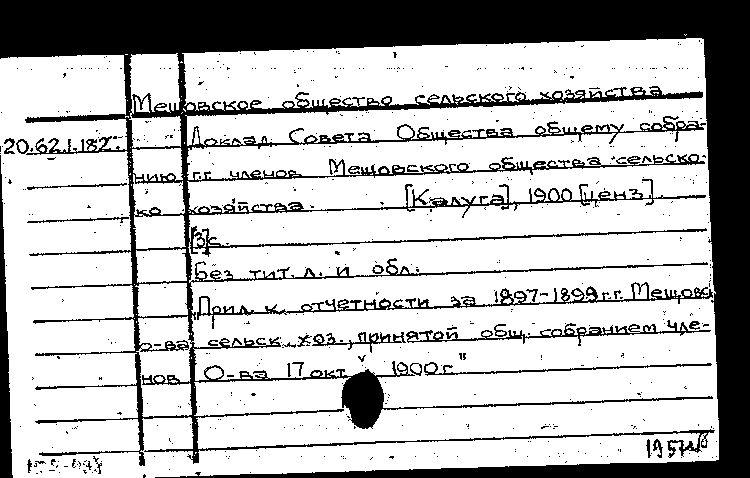 Мещовское общество сельского хозяйства
20.62.1.182. Доклад Совета Общества общему собра-
нию г.г. членов Мещовского общества сельско-
ко хозяйства. [Калуга], 1900 [ценз].
[3]с.
Без тит. л. и обл.
Прил. к. отчетности за 1897-1899 г.г. Мещовс
о-ва сельск. хоз., принятой общ. собранием чле-
нов О-ва 17 окт. 1900 г."